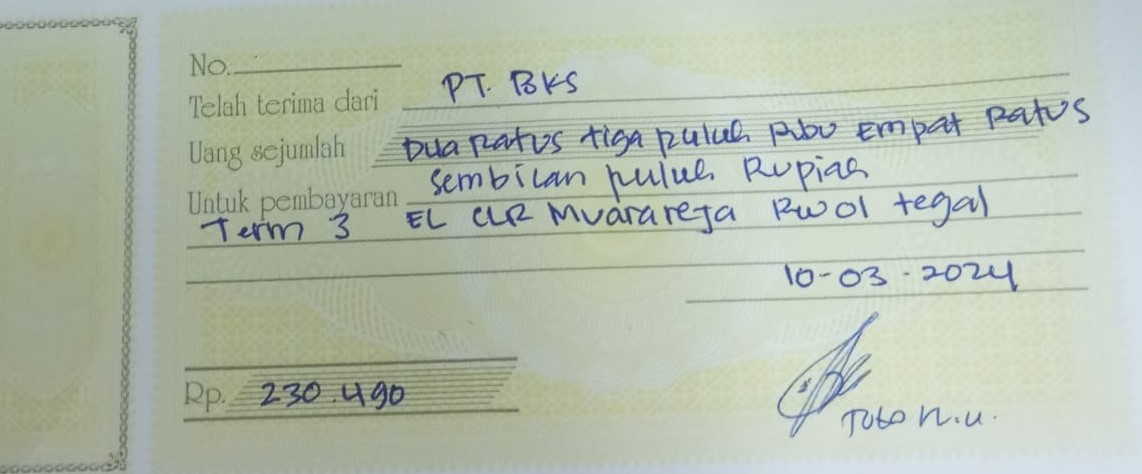 No.
Telah terima dari PT. BKS
Uang sejumlah Dua Ratus tiga puluh Ribu Empat Ratus
Sembilan puluh Rupiah
Untuk pembayaran
Term 3 EL CLR Muarareja RW01 tegal
10-03-2024
Rp. 230.490
Toto N.U.